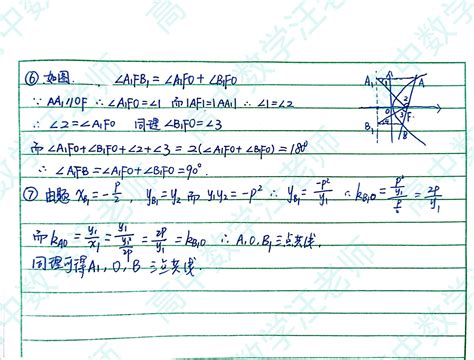 ⑥如图, ∠A₁FB₁=∠A₁FO+∠B₁FO
∵ AA₁//OF ∴∠A₁FO=∠1 而|AF|=|AA₁| ∴∠1=∠2
∴∠2=∠A₁FO 同理∠B₁FO=∠3
而∠A₁FO+∠B₁FO+∠2+∠3=2(∠A₁FO+∠B₁FO)=180°
∴ ∠A₁FB₁=∠A₁FO+∠B₁FO=90°.
⑦ 由题 x_{B₁}=-p/2, y_{B₁}=y₂ 而 y₁y₂=-p² ∴ y_{B₁}=-p²/y₁ ∴ k_{B₁O}=(p²/y₁)/(p/2)=2p/y₁
而 k_{AO}=y₁/x₁=y₁/(y₁²/2p)=2p/y₁=k_{B₁O} ∴ A,O,B₁三点共线.
同理可得A₁,O,B三点共线.
高中数学汪老师